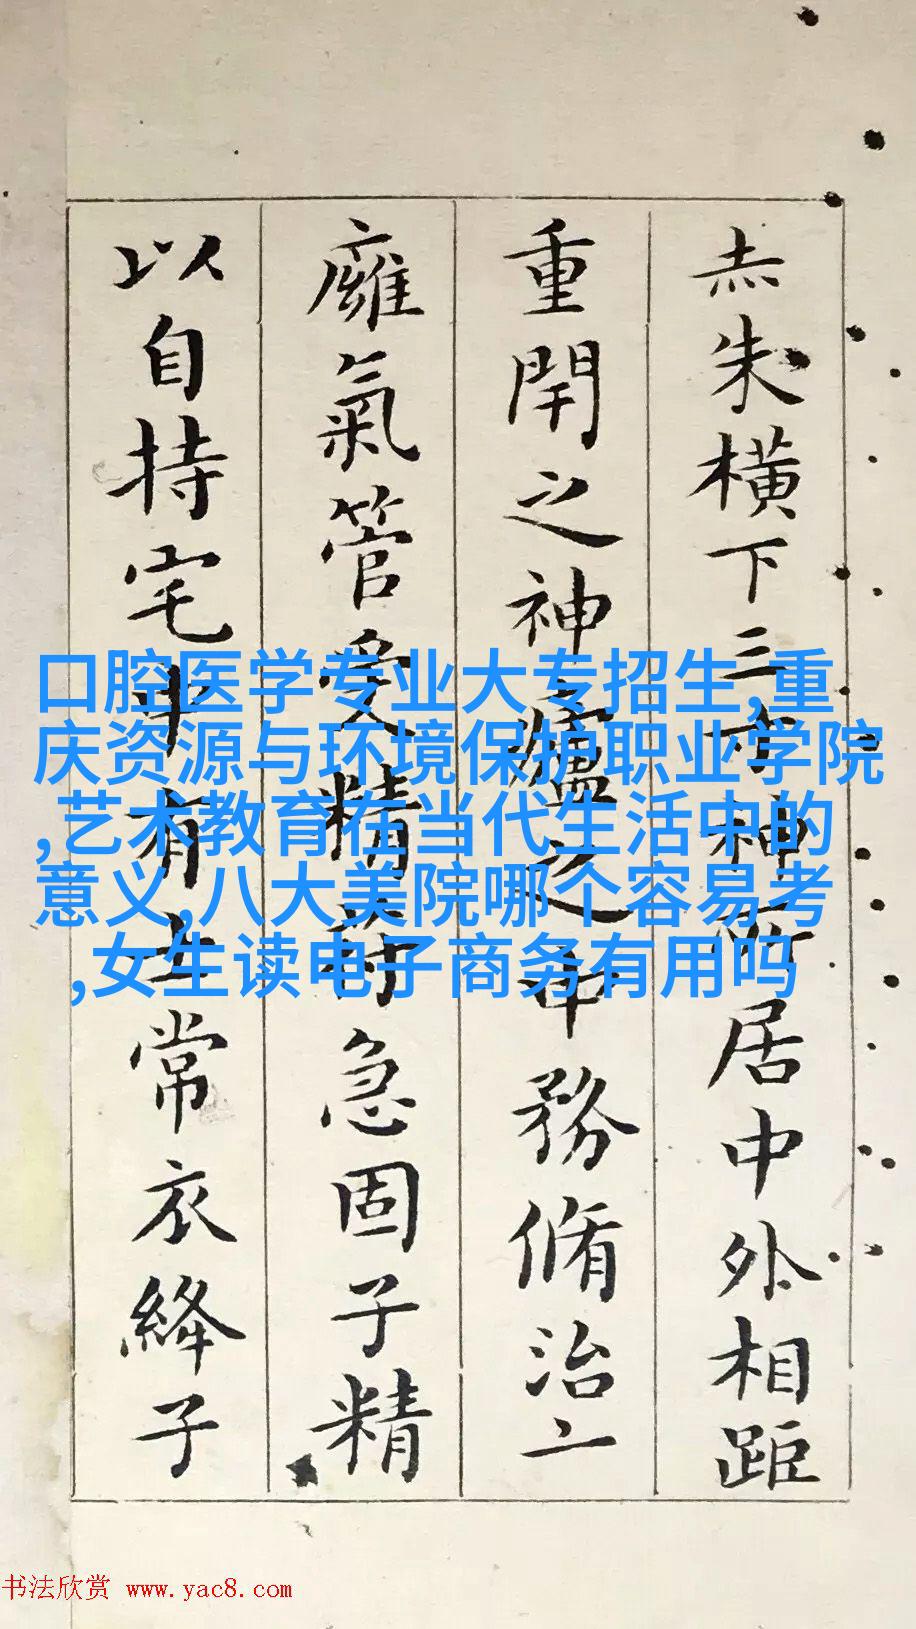 赤朱橫下三寸神所居中外相距
重閉之神廬之中務脩治
廱氣管受精符急固子精
以自持宅中有士常衣絳子
口腔医学专业大专招生,重
庆资源与环境保护职业学院
,艺术教育在当代生活中的
意义,八大美院哪个容易考
,女生读电子商务有用吗
书法欣赏 www.yac8.com